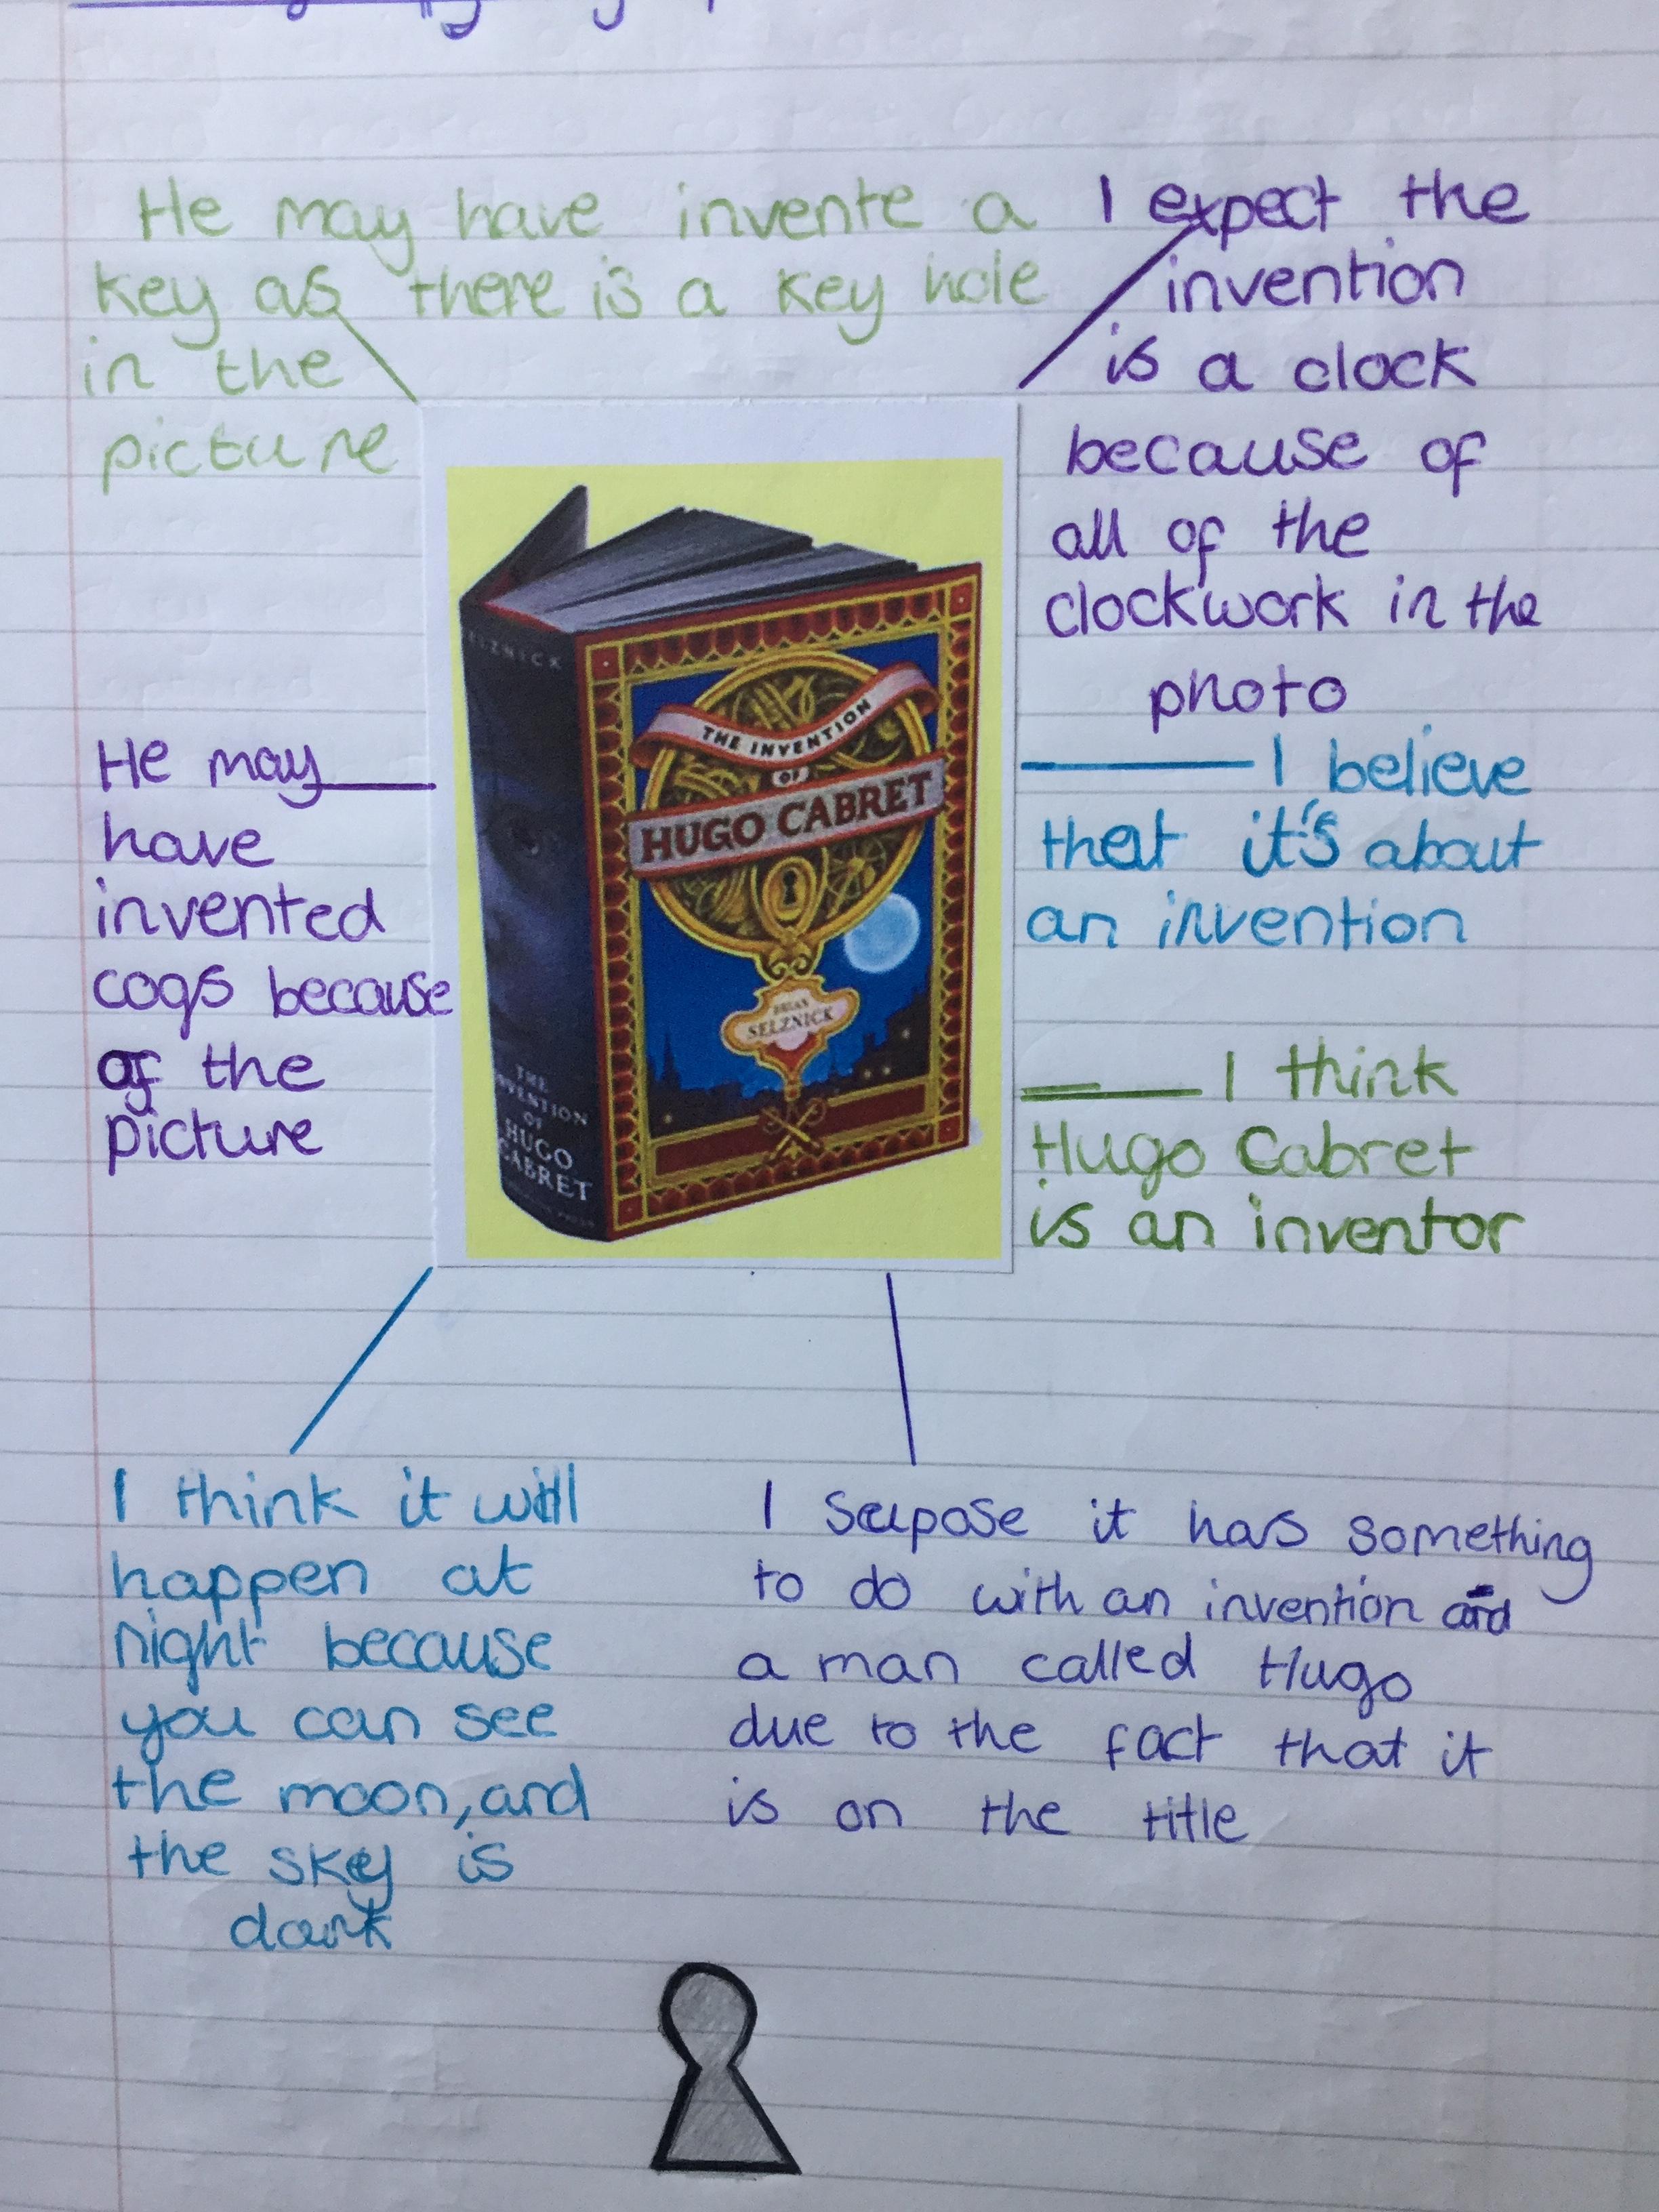 He may have invente a
key as there is a key hole
in the
picture
I expect the
invention
is a clock
because of
all of the
clockwork in the
photo
He may
have
invented
cogs because
of the
picture
SELZNICK
THE
INVENTION
OF
HUGO
CABRET
THE INVENTION
OF
HUGO CABRET
BRIAN
SELZNICK
I believe
that it's about
an invention
I think
Hugo Cabret
is an inventor
I think it will
happen at
night because
you can see
the moon, and
the sky is
dark
I Supose it has something
to do with an invention and
a man called Hugo
due to the fact that it
is on the title